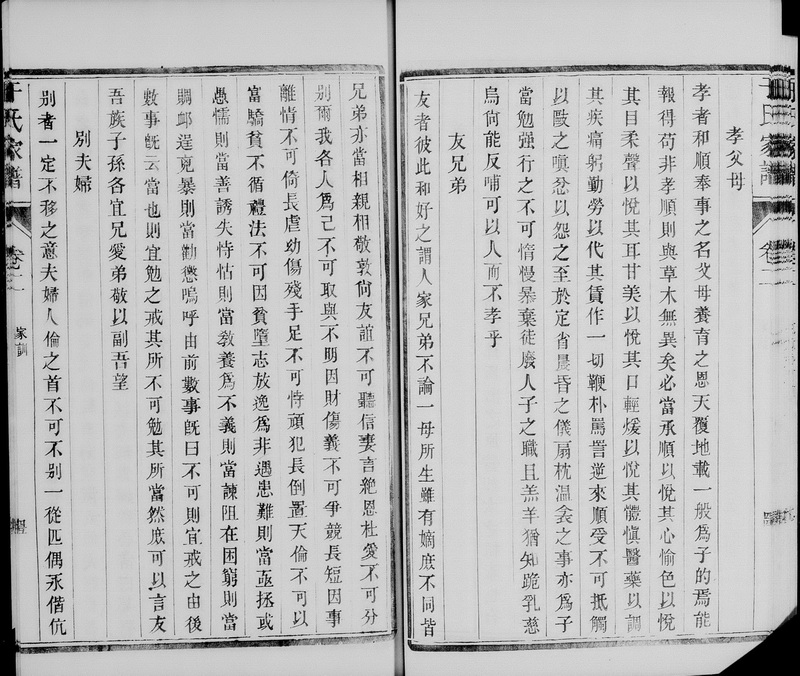 孝父母
孝者和順奉事之名父母養育之恩天覆地載一般爲子的焉能
報得苟非孝順則與草木無異矣必當承順以悅其心愉色以悅
其目柔聲以悅其耳甘美以悅其口輕煖以悅其體慎醫藥以調
其疾痛躬勤勞以代其賃作一切鞭朴罵詈逆來順受不可抵觸
以歐之嗔忿以怨之至於定省晨昏之儀扇枕溫衾之事亦爲子
當勉强行之不可惰慢暴棄徒廢人子之職且羔羊猶知跪乳慈
烏尙能反哺可以人而不孝乎
友兄弟
友者彼此和好之謂人家兄弟不論一母所生雖有嫡庶不同皆
兄弟亦當相親相敬敦尙友誼不可聽信妻言絶恩杜愛不可分
別爾我各人爲己不可取與不明因財傷義不可爭競長短因事
離情不可倚長虐幼傷殘手足不可恃頑犯長倒置天倫不可以
富驕貧不循禮法不可因貧墮志放逸爲非遇患難則當亟拯或
愚懦則當善誘失恃怙則當敎養爲不義則當諫阻在困窮則當
賙卹逞兇暴則當勸懲嗚呼由前數事旣曰不可則宜戒之由後
數事旣云當也則宜勉之戒其所不可勉其所當然庶可以言友
吾族子孫各宜兄愛弟敬以副吾望
別夫婦
別者一定不移之意夫婦人倫之首不可不別一從匹偶永偕伉
于氏家譜
卷二
家訓